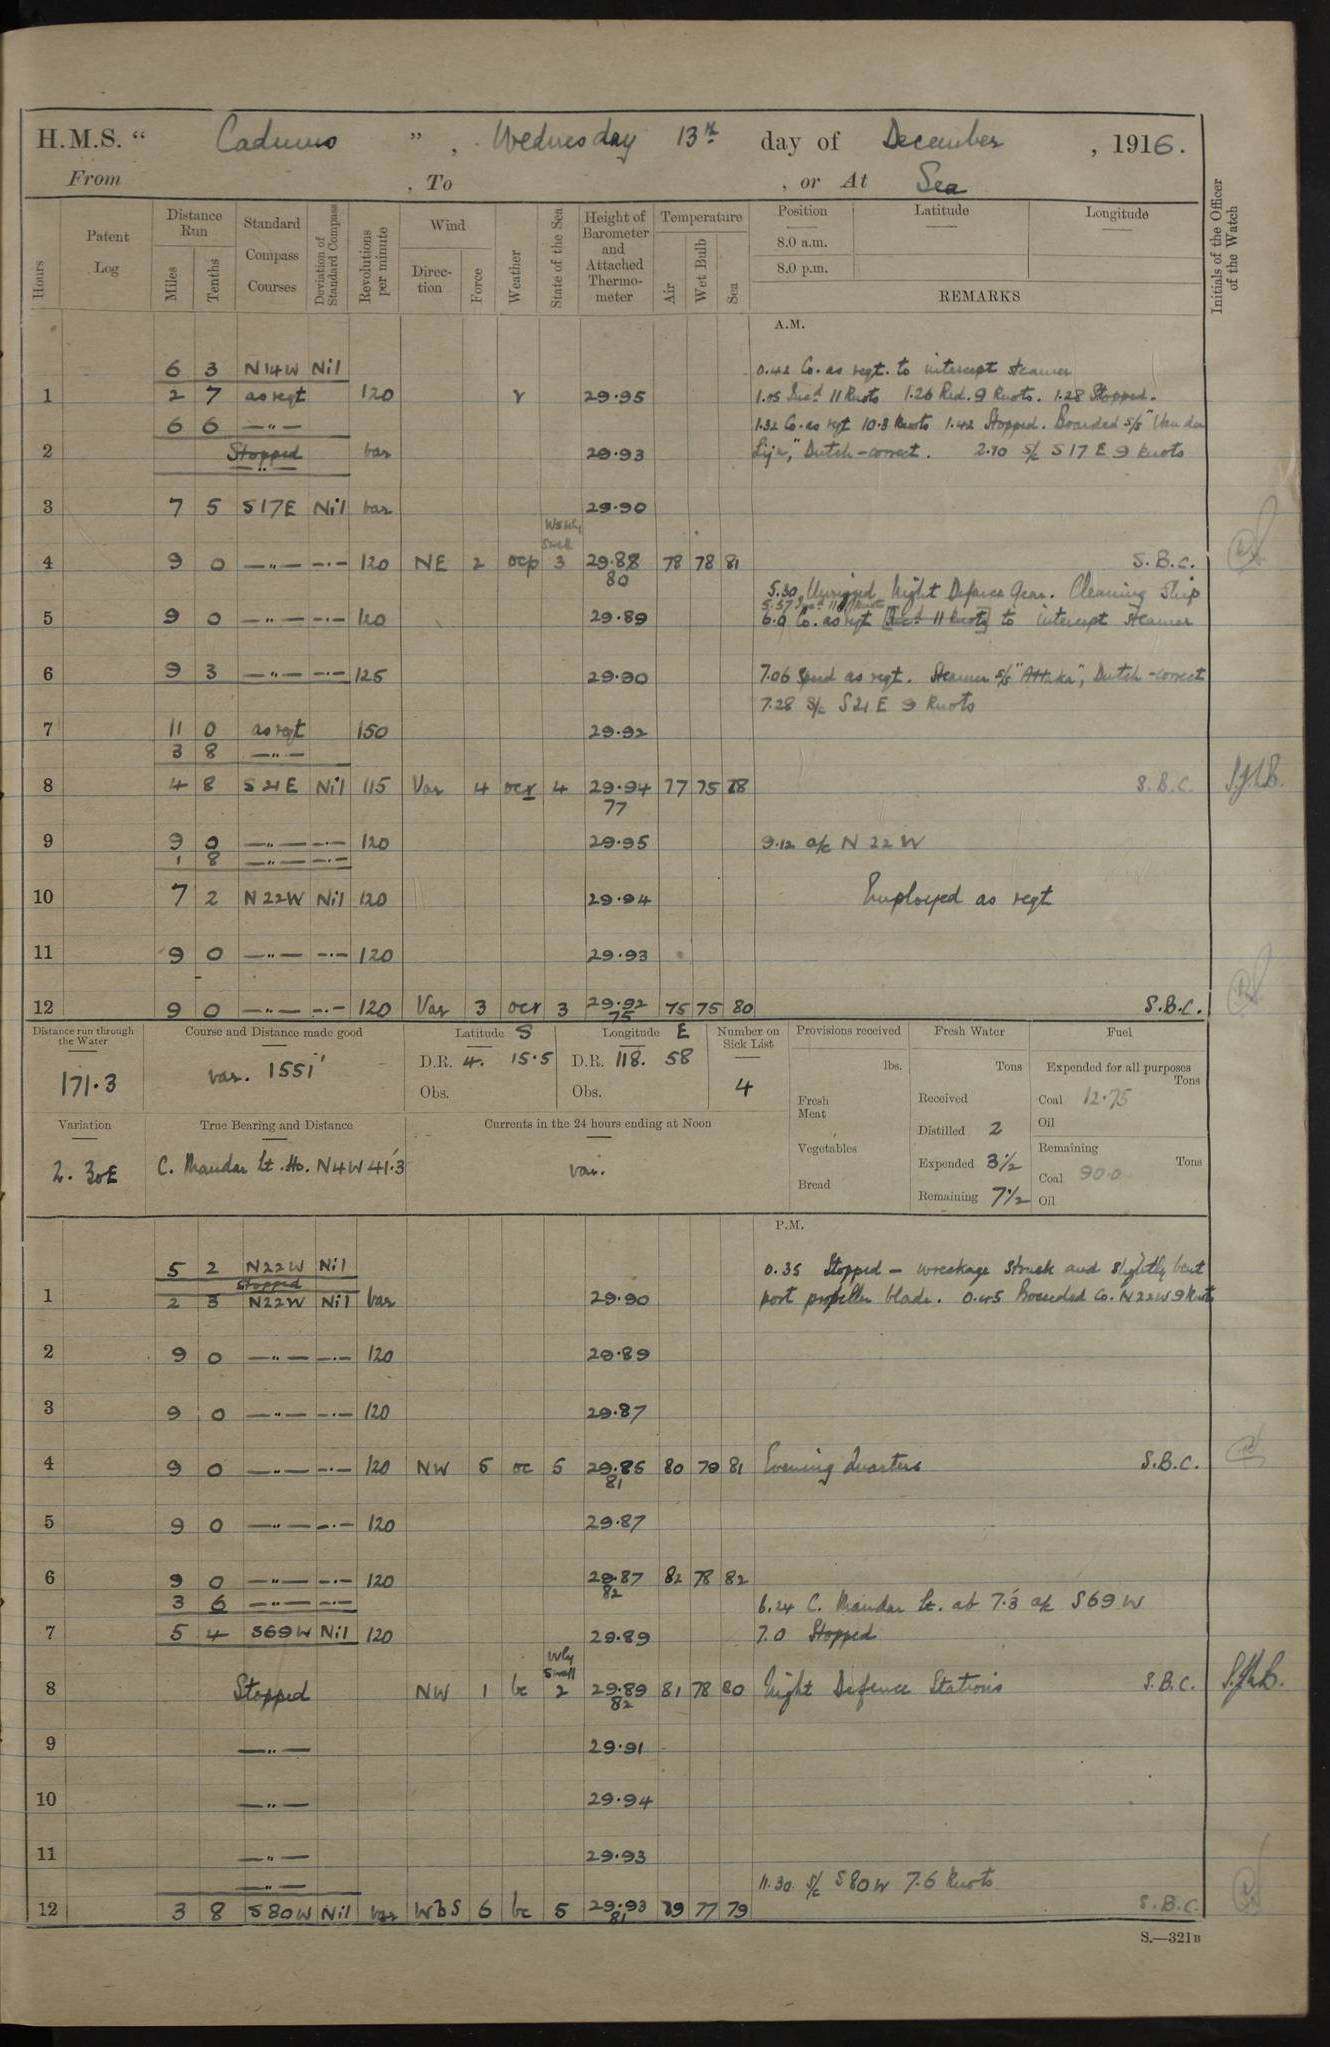 H.M.S. “ Cadmus ” , Wednesday 13th day of December , 1916.
From , To , or At Sea
Hours
Patent Log
Distance Run
Miles
Tenths
Standard Compass Courses
Deviation of Standard Compass
Revolutions per minute
Wind
Direction
Force
Weather
State of the Sea
Height of Barometer and Attached Thermometer
Temperature
Air
Wet Bulb
Sea
Position
8.0 a.m.
8.0 p.m.
Latitude
Longitude
REMARKS
Initials of the Officer of the Watch
A.M.
6 3 N14W Nil 0.42 Co. as reqt. to intercept steamer
1 2 7 as reqt 120 r 29.95 1.05 Incd 11 Knots 1.26 Red. 9 Knots. 1.28 Stopped.
6 6 —"— 1.32 Co. as reqt 10.3 Knots 1.42 Stopped. Boarded S/S "Van der
2 Stopped var 29.93 Lijn," Dutch - correct. 2.10 S/c S17E 9 Knots
—"—
3 7 5 S17E Nil var 29.90
Swell
4 9 0 —"— —·— 120 NE 2 ocp 3 29.88 78 78 81 S.B.C.
80
5.30 Unrigged Night Defence Gear. Cleaning Ship
5.57 Incd 11 Knots
5 9 0 —"— —·— 120 29.89 6.0 Co. as reqt [Incd 11 Knots] to intercept steamer
6 9 3 —"— —·— 125 29.90 7.06 Speed as reqt. Steamer S/S "Attaka", Dutch - correct
7.28 S/c S21E 9 Knots
7 11 0 as reqt 150 29.92
3 8 —"—
8 4 8 S21E Nil 115 Var 4 ocr 4 29.94 77 75 78 S.B.C.
77
9 9 0 —"— —·— 120 29.95 9.12 a/c N22W
1 8 —"— —·—
10 7 2 N22W Nil 120 29.94 Employed as reqt
11 9 0 —"— —·— 120 29.93
12 9 0 —"— —·— 120 Var 3 ocr 3 29.92 75 75 80 S.B.C.
75
Distance run through the Water
171.3
Course and Distance made good
var. 155'
Latitude S
D.R. 4. 15.5
Obs.
Longitude E
D.R. 118. 58
Obs.
Number on Sick List
4
Provisions received
lbs.
Fresh Meat
Vegetables
Bread
Fresh Water
Tons
Received
Distilled 2
Expended 3½
Remaining 7½
Fuel
Expended for all purposes
Tons
Coal 12.75
Oil
Remaining
Tons
Coal 90.0
Oil
Variation
2. 30E
True Bearing and Distance
C. Mandar Lt. Ho. N4W 41.3
Currents in the 24 hours ending at Noon
var.
P.M.
5 2 N22W Nil 0.35 Stopped - wreckage struck and slightly bent
Stopped
1 2 3 N22W Nil var 29.90 port propeller blade. 0.45 Proceeded Co. N22W 9 Knots
2 9 0 —"— —·— 120 29.89
3 9 0 —"— —·— 120 29.87
4 9 0 —"— —·— 120 NW 5 oc 5 29.85 80 79 81 Evening Quarters S.B.C.
81
5 9 0 —"— —·— 120 29.87
6 9 0 —"— —·— 120 29.87 82 78 82
82
3 6 —"— —·— 6.24 C. Mandar Lt. ab 7.3 a/c S69W
7 5 4 S69W Nil 120 29.89 7.0 Stopped
Wly Swell
8 Stopped NW 1 bc 2 29.89 81 78 80 Night Defence Stations S.B.C.
82
9 —"— 29.91
10 —"— 29.94
11 —"— 29.93
—"— 11.30 S/c S80W 7.6 Knots
12 3 8 S80W Nil var WbS 6 bc 5 29.93 79 77 79 S.B.C.
81
S.—321B